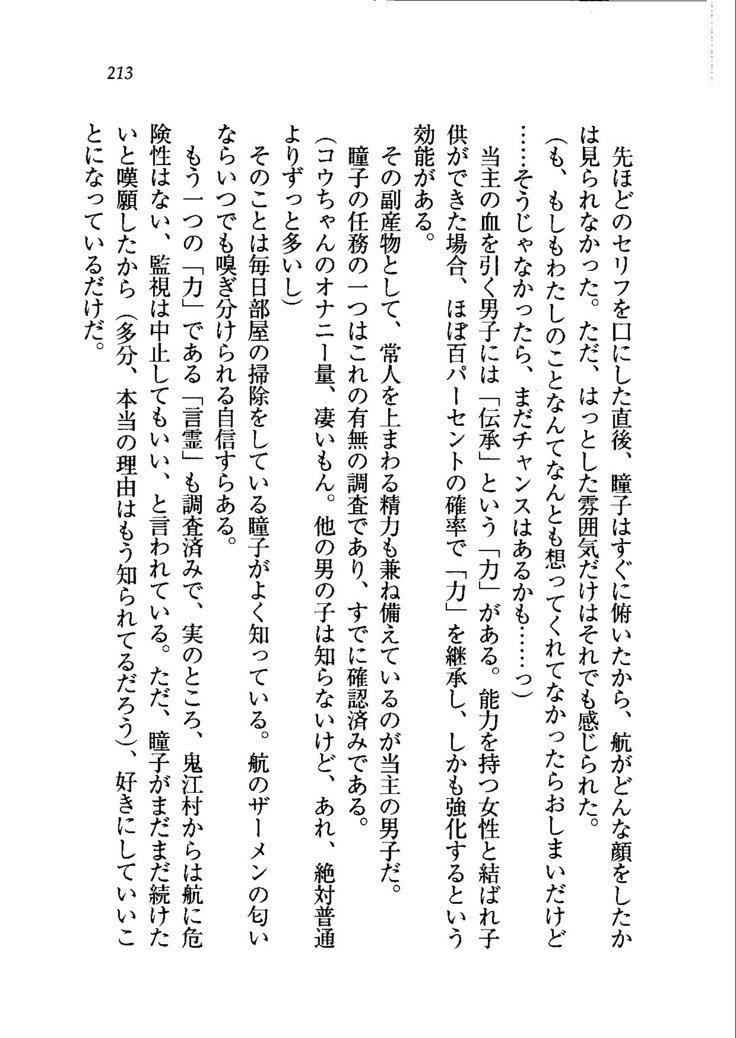 213
先ほどのセリフを口にした直後、瞳子はすぐに俯いたから、航がどんな顔をしたか
は見られなかった。ただ、はっとした雰囲気だけはそれでも感じられた。
（も、もしもわたしのことなんてなんとも想ってくれてなかったらおしまいだけど
……そうじゃなかったら、まだチャンスはあるかも……っ）
当主の血を引く男子には「伝承」という「力」がある。能力を持つ女性と結ばれ子
供ができた場合、ほぼ百パーセントの確率で「力」を継承し、しかも強化するという
効能がある。
その副産物として、常人を上まわる精力も兼ね備えているのが当主の男子だ。
瞳子の任務の一つはこれの有無の調査であり、すでに確認済みである。
（コウちゃんのオナニー量、凄いもん。他の男の子は知らないけど、あれ、絶対普通
よりずっと多いし）
そのことは毎日部屋の掃除をしている瞳子がよく知っている。航のザーメンの匂い
ならいつでも嗅ぎ分けられる自信すらある。
もう一つの「力」である「言霊」も調査済みで、実のところ、鬼江村からは航に危
険性はない、監視は中止してもいい、と言われている。ただ、瞳子がまだまだ続けた
いと嘆願したから（多分、本当の理由はもう知られてるだろう）、好きにしていいこ
とになっているだけだ。